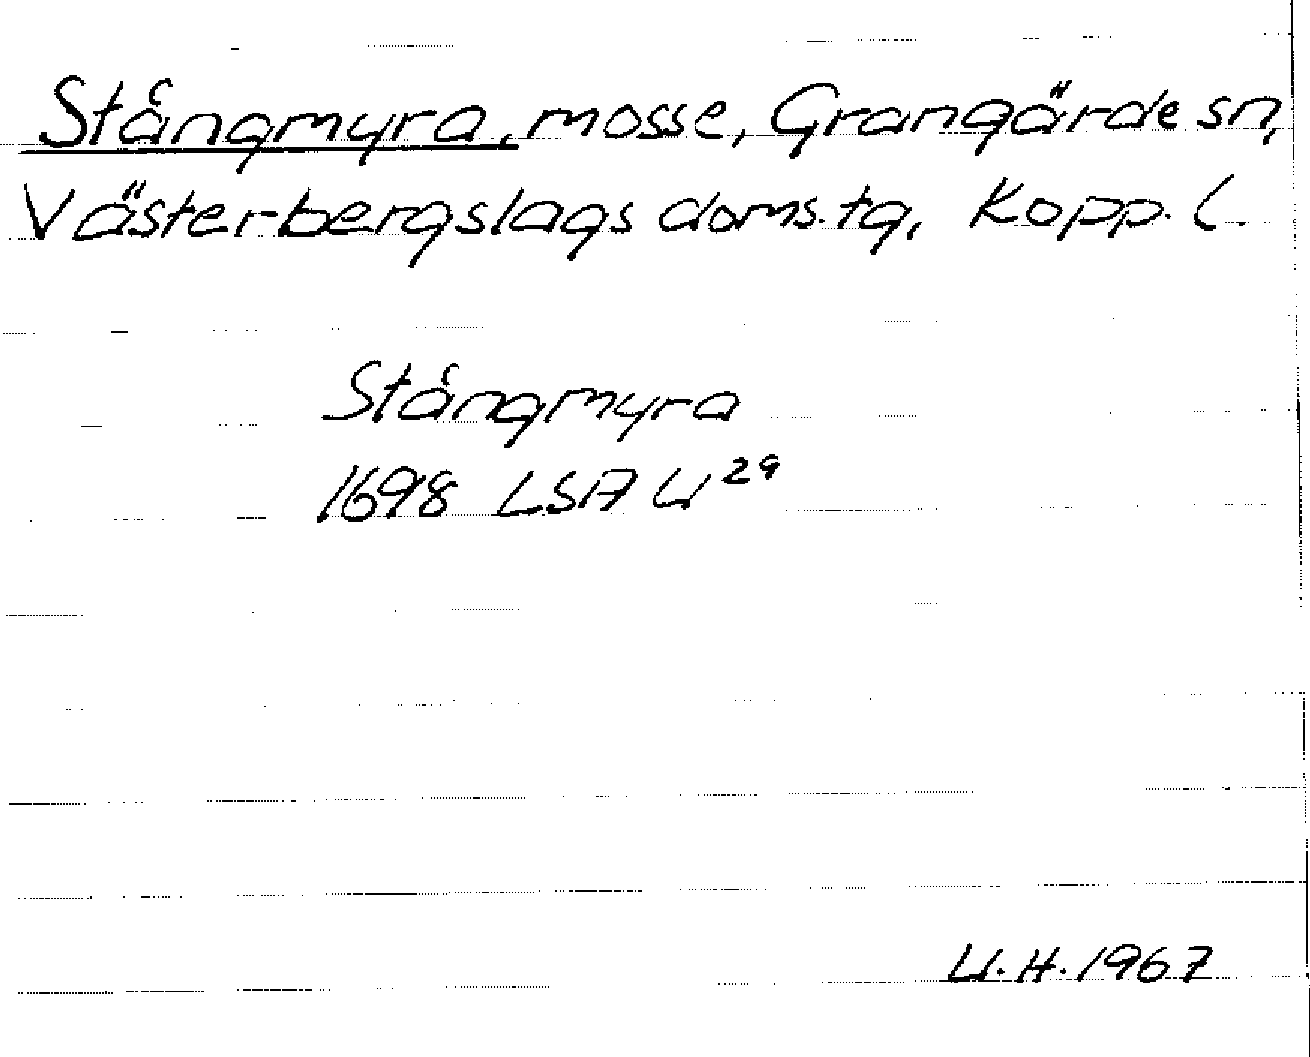 Stångmyra, mosse, Grangärde sn,
Västerbergslags doms.tg, Kopp. l.
Stångmyra
1698 LSA U²⁹
U.H. 1967